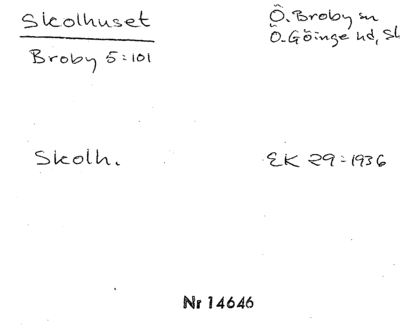 Skolhuset
Ö. Broby sn
Broby 5:101
Ö. Göinge hd, Sk
Skolh.
EK 29:1936
Nr 14646